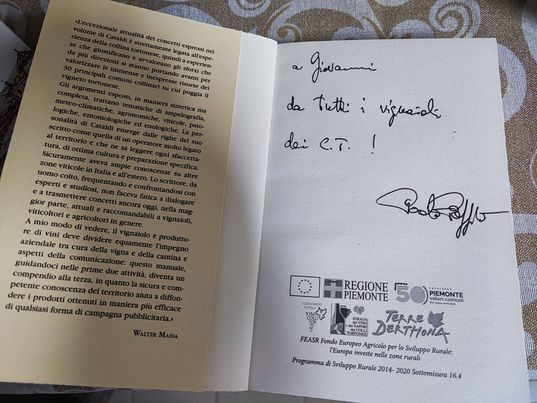 «L'eccezionale attualità dei concetti espressi nel
volume di Cataldi è strettamente legata all'espe-
rienza della collina tortonese, quindi a esperien-
ze che giustificano e avvalorano gli sforzi che
da più direzioni si stanno portando avanti per
valorizzare le immense e inespresse risorse dei
30 principali comuni collinari su cui poggia il
vigneto tortonese.
Gli argomenti esposti, in maniera sintetica ma
completa, trattano tematiche di ampelografia,
meteo-climatiche, agronomiche, viticole, pato-
logiche, entomologiche ed enologiche. La per-
sonalità di Cataldi emerge dalle righe del suo
scritto come quella di un operatore molto legato
al territorio e che ne sa leggere ogni sfaccetta-
tura, di ottima cultura e preparazione specifica.
Sicuramente aveva ampie conoscenze su altre
zone viticole in Italia e all'estero. Lo scrittore, da
uomo colto, frequentando e confrontandosi con
esperti e studiosi, non faceva fatica a dialogare
e a trasmettere concetti ancora oggi, nella mag-
gior parte, attuali e raccomandabili a vignaioli,
viticoltori e agricoltori in genere.
A mio modo di vedere, il vignaiolo e produtto-
re di vini deve dividere equamente l'impegno
aziendale tra cura della vigna e della cantina e
aspetti della comunicazione: questo manuale,
guidandoci nelle prime due attività, diventa un
compendio alla terza, in quanto la sicura e com-
petente conoscenza del territorio aiuta a diffon-
dere i prodotti ottenuti in maniera più efficace
di qualsiasi forma di campagna pubblicitaria.»
WALTER MASSA
a Giovanni
da tutti i vignaioli
dei C.T. !
REGIONE
PIEMONTE
50
PIEMONTE
valori comuni
STRADA
DEL VINO
TERRE
DERTHONA
FEASR Fondo Europeo Agricolo per lo Sviluppo Rurale:
l'Europa investe nelle zone rurali
Programma di Sviluppo Rurale 2014- 2020 Sottomisura 16.4